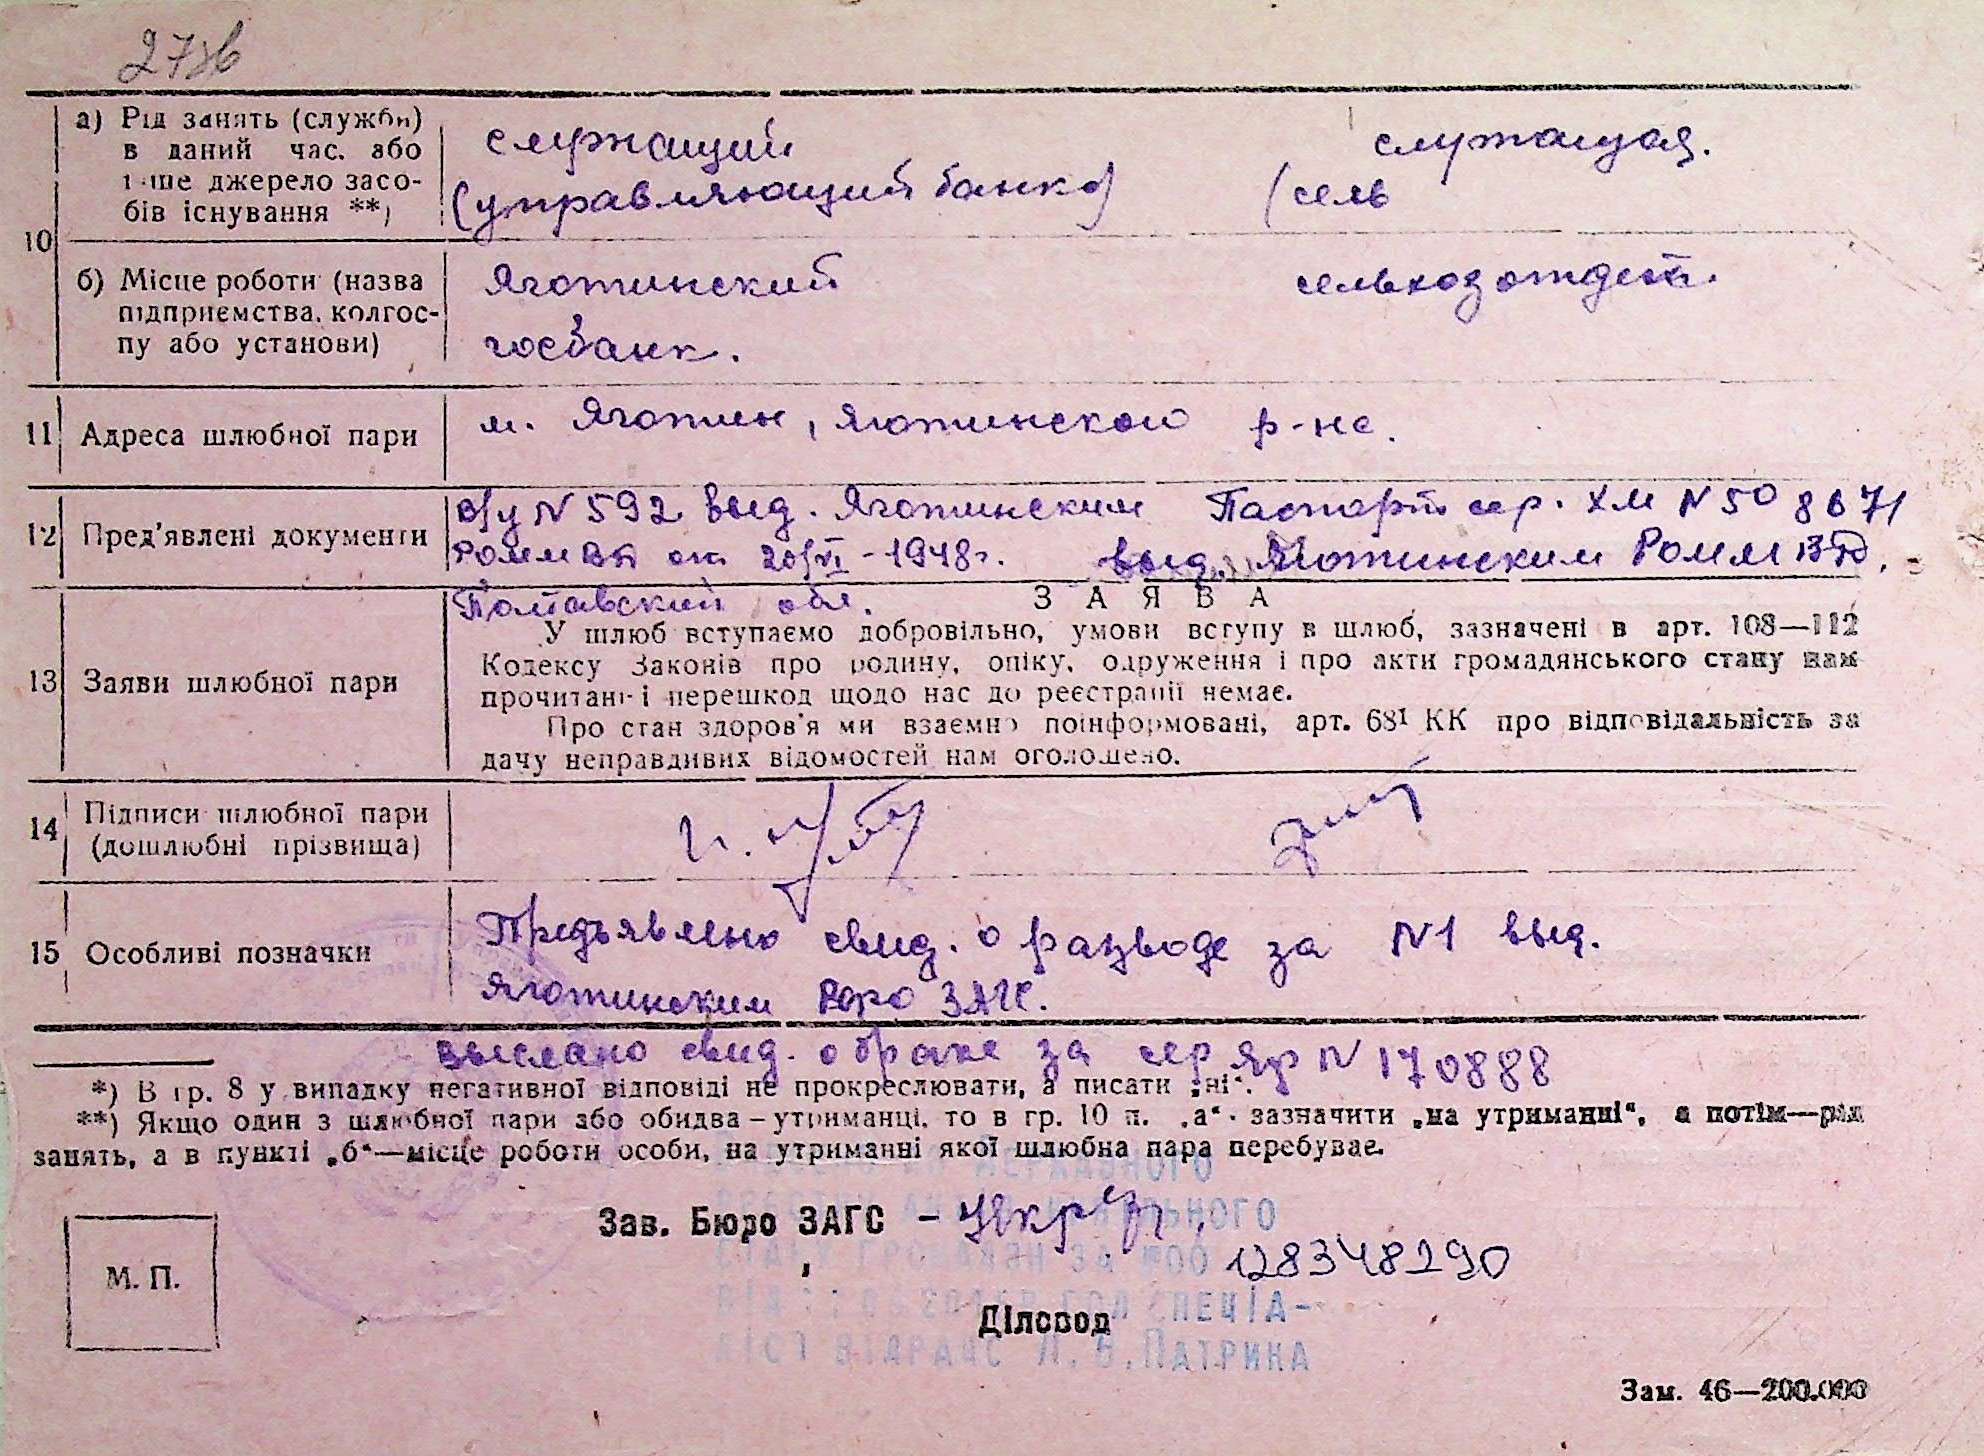 10
а) Рід занять (служби)
в даний час, або
інше джерело засо-
бів існування **)
служащий
(управляющий банка)
служащая.
(сель
б) Місце роботи (назва
підприємства, колгос-
пу або установи)
Яготинский
госбанк.
сельхоз отдел.
11 Адреса шлюбної пари
м. Яготин, Яготинского р-на.
12 Пред'явлені документи
в/у N 592 выд. Яготинским
РОММВД от 20/VI-1948г.
Полтавский обл.
Паспорт сер. ХМ N 508671
выд. Яготинским РОММВД.
13 Заяви шлюбної пари
ЗАЯВА
У шлюб вступаємо добровільно, умови вступу в шлюб, зазначені в арт. 108—112
Кодексу Законів про родину, опіку, одруження і про акти громадянського стану нам
прочитані і перешкод щодо нас до реєстрації немає.
Про стан здоров'я ми взаємно поінформовані, арт. 68¹ КК про відповідальність за
дачу неправдивих відомостей нам оголошено.
14 Підписи шлюбної пари
(дошлюбні прізвища)
15 Особливі позначки
Предъявлено свид. о разводе за N1 выд.
Яготинским Бюро ЗАГС.
Выслано свид. о браке за сер ЯР N 170888
*) В гр. 8 у випадку негативної відповіді не прокреслювати, а писати „ні“.
**) Якщо один з шлюбної пари або обидва – утриманці, то в гр. 10 п. „а“ зазначити „на утриманні“, а потім—рід
занять, а в пункті „б“—місце роботи особи, на утриманні якої шлюбна пара перебуває.
ДЕРЖАВНОГО
РЕЄСТРУ АКТІВ ЦИВІЛЬНОГО
СТАНУ ГРОМАДЯН ЗА №00 128348290
СПЕЦІА-
ЛІСТ ВІДРАЦС Л.В.ПАТРИНА
М. П.
Зав. Бюро ЗАГС –
Діловод
Зам. 46—200.000